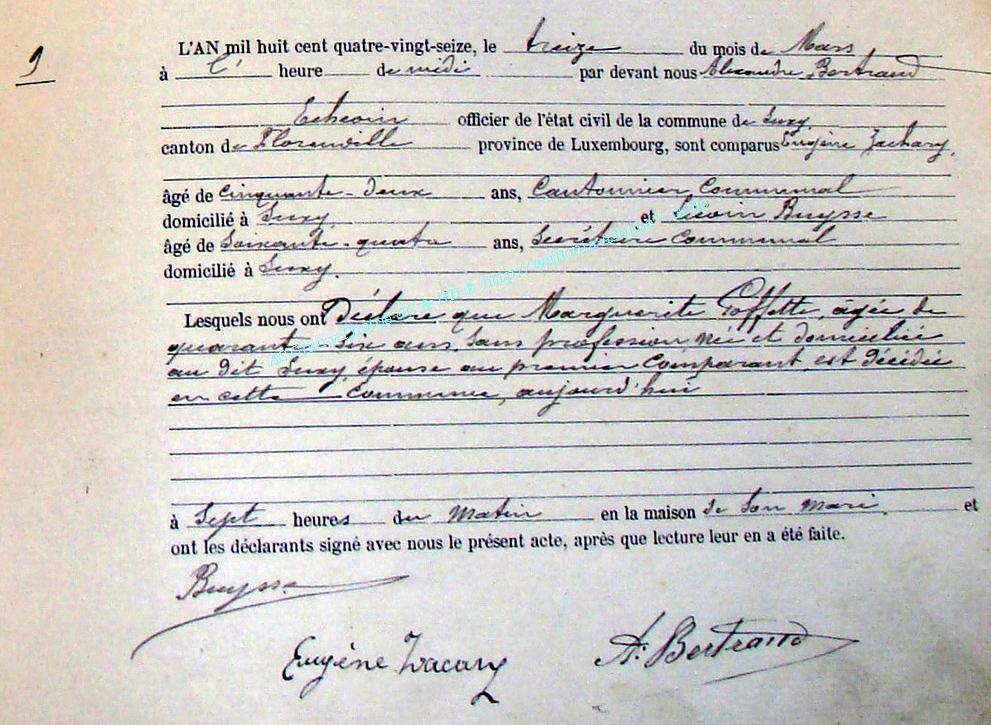 9
L'AN mil huit cent quatre-vingt-seize, le treize du mois de Mars
à l' heure de midi par devant nous Alexandre Bertrand
Echevin officier de l'état civil de la commune de Suxy
canton de Florenville province de Luxembourg, sont comparus Eugène Zachary,
âgé de cinquante-deux ans, Cantonnier Communal
domicilié à Suxy et Lievin Buysse
âgé de Soixante-quatre ans, Secrétaire Communal
domicilié à Suxy.
Lesquels nous ont Déclaré que Marguerite Goffette, âgée de
quarante-six ans, Sans profession née et domiciliée
au dit Suxy, épouse au premier Comparant, est décédée
en cette Commune, aujourd'hui
à Sept heures du Matin en la maison de Son Mari, et
ont les déclarants signé avec nous le présent acte, après que lecture leur en a été faite.
Buysse
Eugène Zacary A. Bertrand